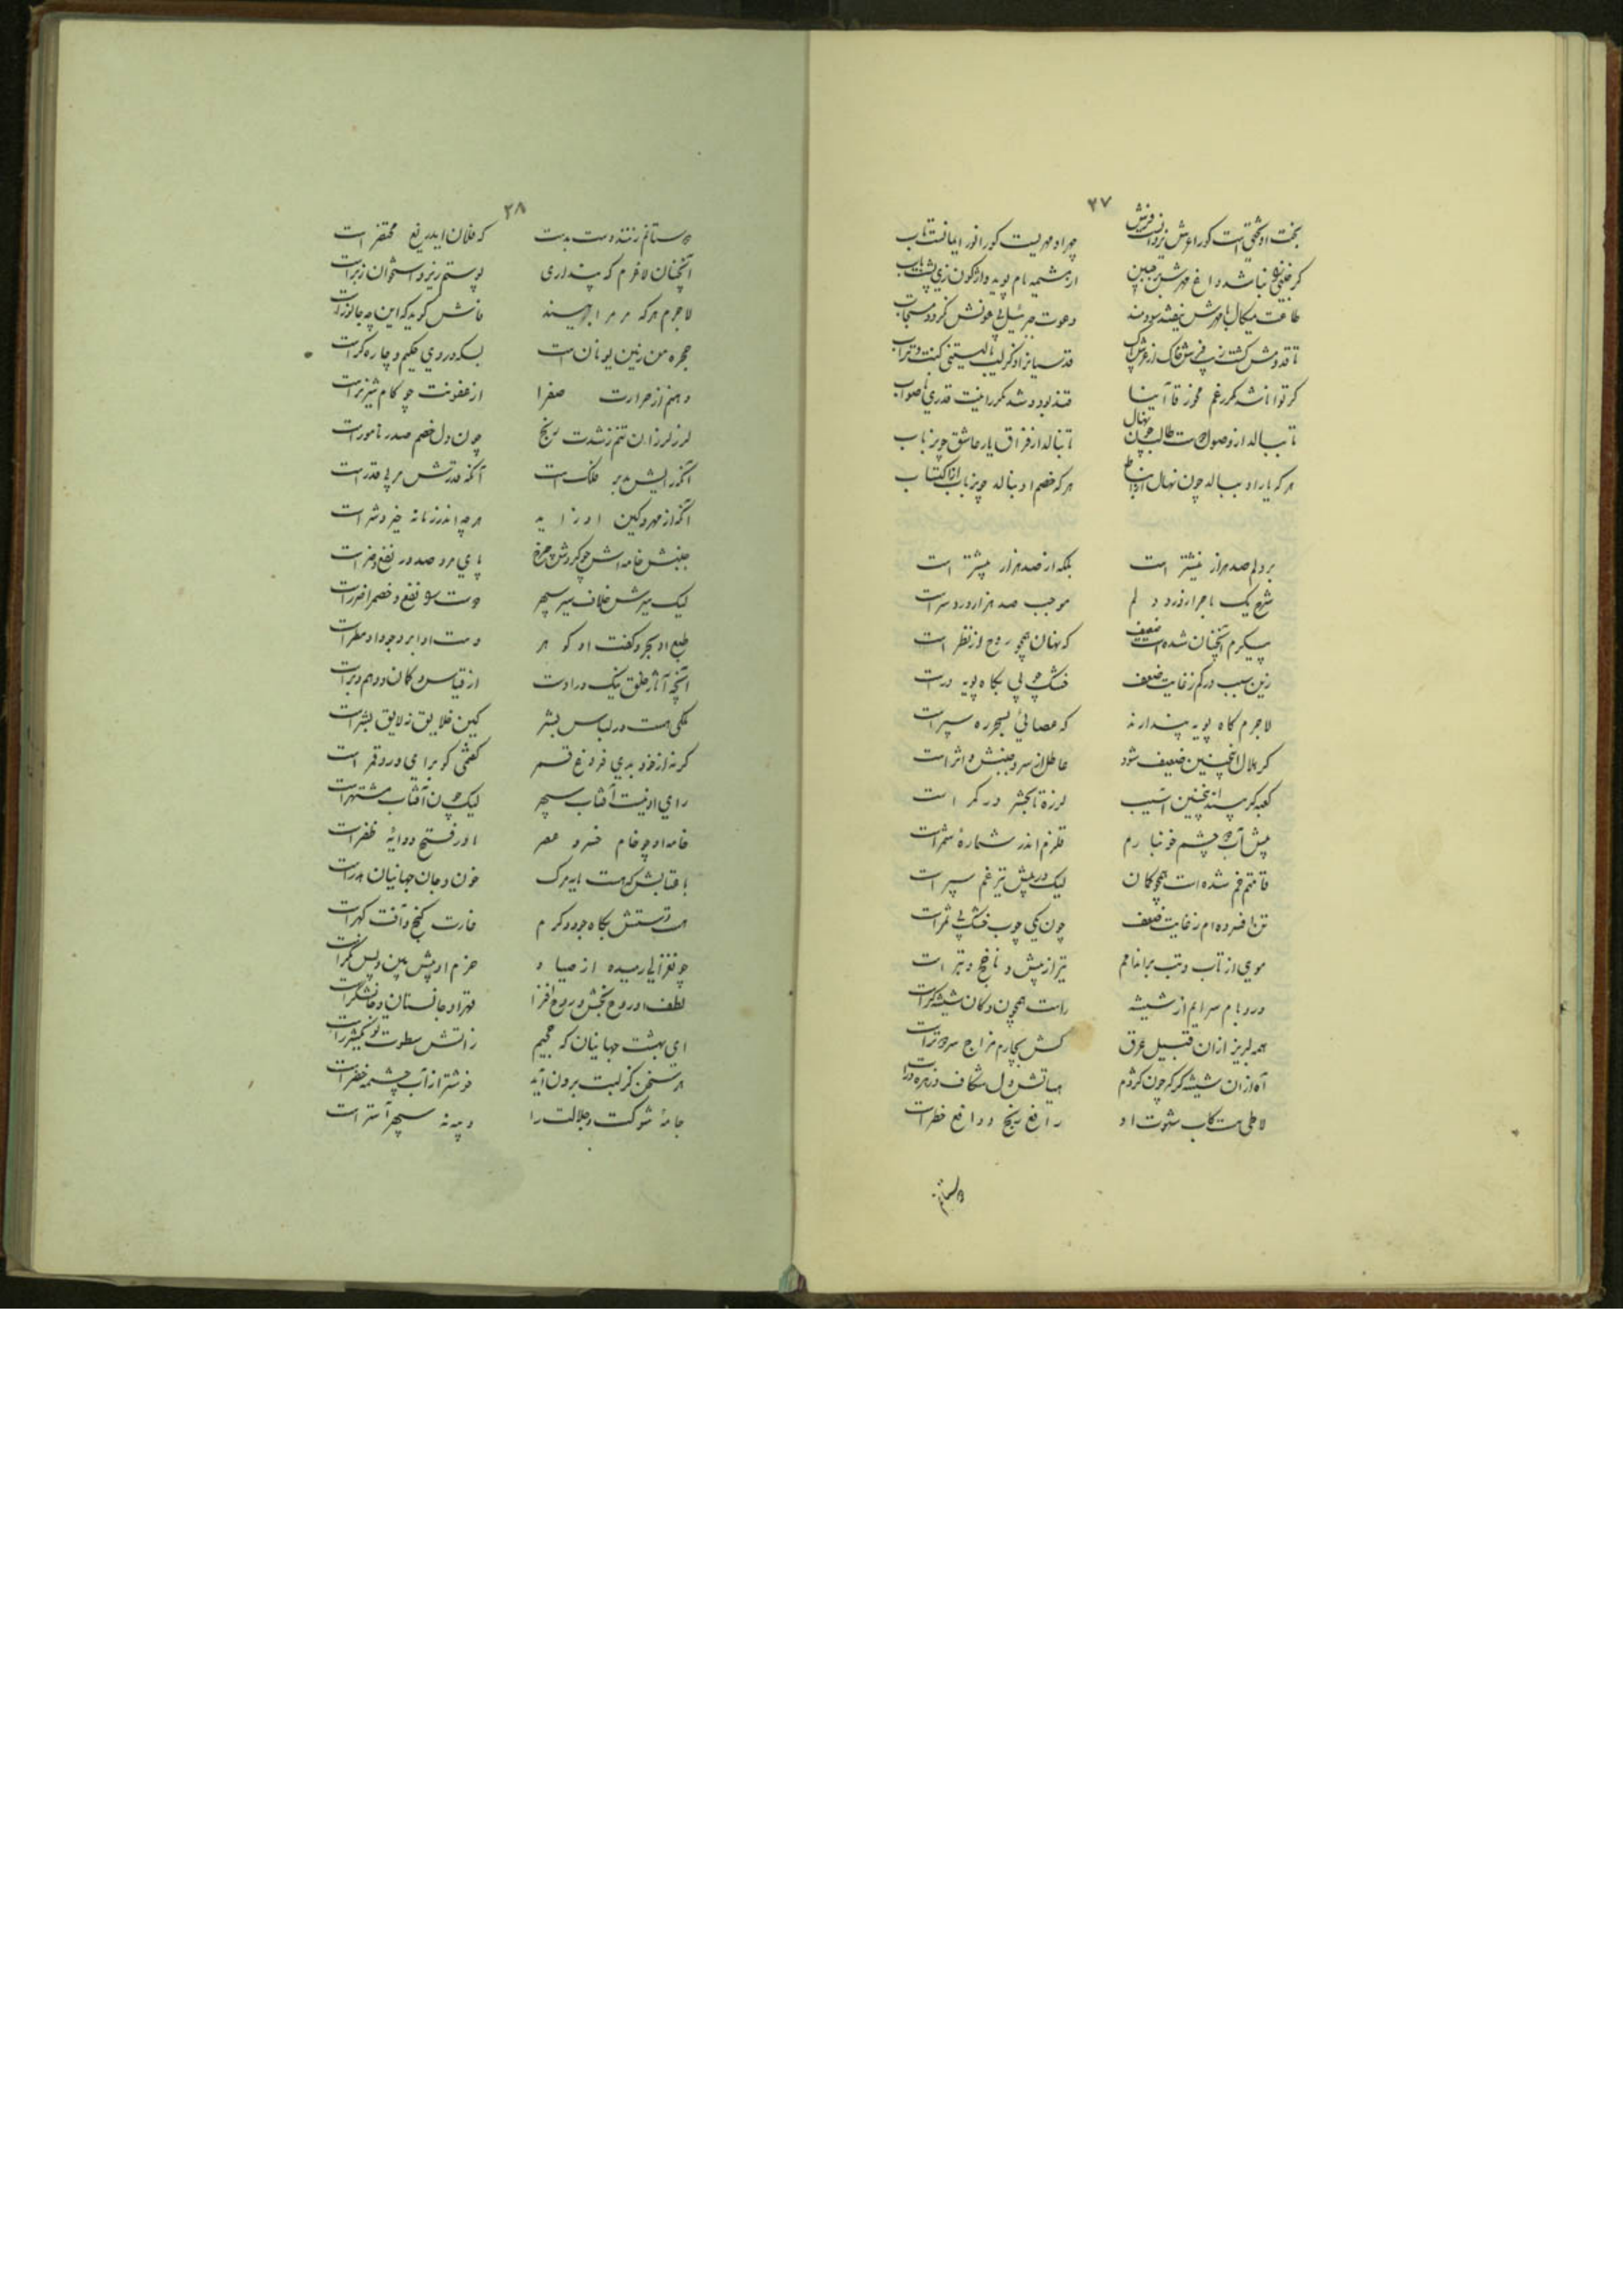 ۲۷
بخت او تختی است کورا عرش یزدانست فرش چهر او مهریست کورا نور ایمانست تاب
گر جنین نباشد داغ مهرش بر جبین از مشیمه مام پوید واژگون زی پشت باب
طاعت میکال بامهرش نیفتد سودمند دعوت جبرئیل بی عونش نگردد مستجاب
گر توانا شد مکرر غم مخور قاآنیا قند بود و شد مکرر نیست قدری ناصواب
تا ببالد از وصول دوست طالب چون نهال تا بنالد از فراق یار عاشق چون رباب
هر که یار او ببالد چون نهال از هر که خصم او بنالد چون رباب از اکتئاب
بر دلم صد هزار نیشتر است بلکه از صد هزار بیشتر است
شرح یک ماجرا ز درد دلم موجب صد هزار دردسر است
پیکرم آنچنان شده است ضعیف که نهان همچو روح از نظر است
زین سبب در کم ز غایت ضعف خشک چوبی بگاه پویه درست
لاجرم گاه پویه پندارند که عصائی بسحر ره سپر است
گر هلال اینچنین ضعیف شود عاطل از سرو جنبش و اثر است
کعبه گر بیند اینچنین آسیب لرزه تا بحشر در کمر است
پیش آب دو چشم خونبارم قلزم اندر شماره شمر است
قامتم خم شده است همچو کمان لیک در پیش تیر غم سپر است
تن افسرده‌ام ز غایت ضعف چون یکی چوب خشک بی ثمر است
موی از تاب و تب بر اندامم تیز از نیش و ناخج و تبر است
در و بام سرایم از شیشه راست همچون دکان شیشه گر است
همه لبریز ازان قبیل عرق کش بچارم مزاج سرد و تر است
آه ازان شیشه گر که چون کژدم
رافع رنج و دافع خطر است
دستانم
۲۸
دوستانم زنند دست بدست که فلان ایدریغ محتضر است
آنچنان لاغرم که پنداری پوستم زیر و استخوان زبر است
لاجرم هر که مر مرا بیند فاش گوید که این چه جانور است
حجره من زمین یونانست بسکه در وی حکیم و چاره گر است
دهنم از حرارت صفرا از عفونت چو کام شیر نر است
لرز لرزان تنم ز شدت رنج چون دل خصم صدر نامور است
آنکه رایش مدبر فلک است آنکه قدرتش مربی قدر است
آنکه از مهر و کین او زاید هر چه اندر زمانه خیر و شر است
جنبش خامه‌اش چو گردش چرخ پای مرد صدور نفع و ضر است
لیک سیرش خلاف سیر سپهر دوست را نفع و خصم را ضرر است
طبع او بحر و گفت او گوهر دست او ابر و جود او مطر است
آنچه آثار خلق نیک دراوست از قیاس و گمان و وهم بر است
ملکی هست در لباس بشر کین خلایق نه لایق بشر است
گرنه از خود بدی فروغ قمر گفتمی کو برای در و قمر است
رای او نیست آفتاب سپهر لیک چون آفتاب مشتهر است
خامه او چو خام خسرو عصر اور فتح و دوایه ظفر است
با عتابش که هست بابر مرگ خون و جان جهانیان هدر است
هست دستش بگاه جود و کرم غارت گنج و آفت گهر است
چو غزالی رمیده از صیاد حزم او پیش بین و پس نگر است
لطف او روح بخش و روح افزا قهر او جانستان و جانشکر است
ای بهشت جهانیان که جحیم ز آتش سطوت تو یکشرر است
هر سخن کز لبت برون آید خوشتر از آب چشمه خضر است
جامهٔ شوکت و جلالت را و یمه نه سپهر آستر است